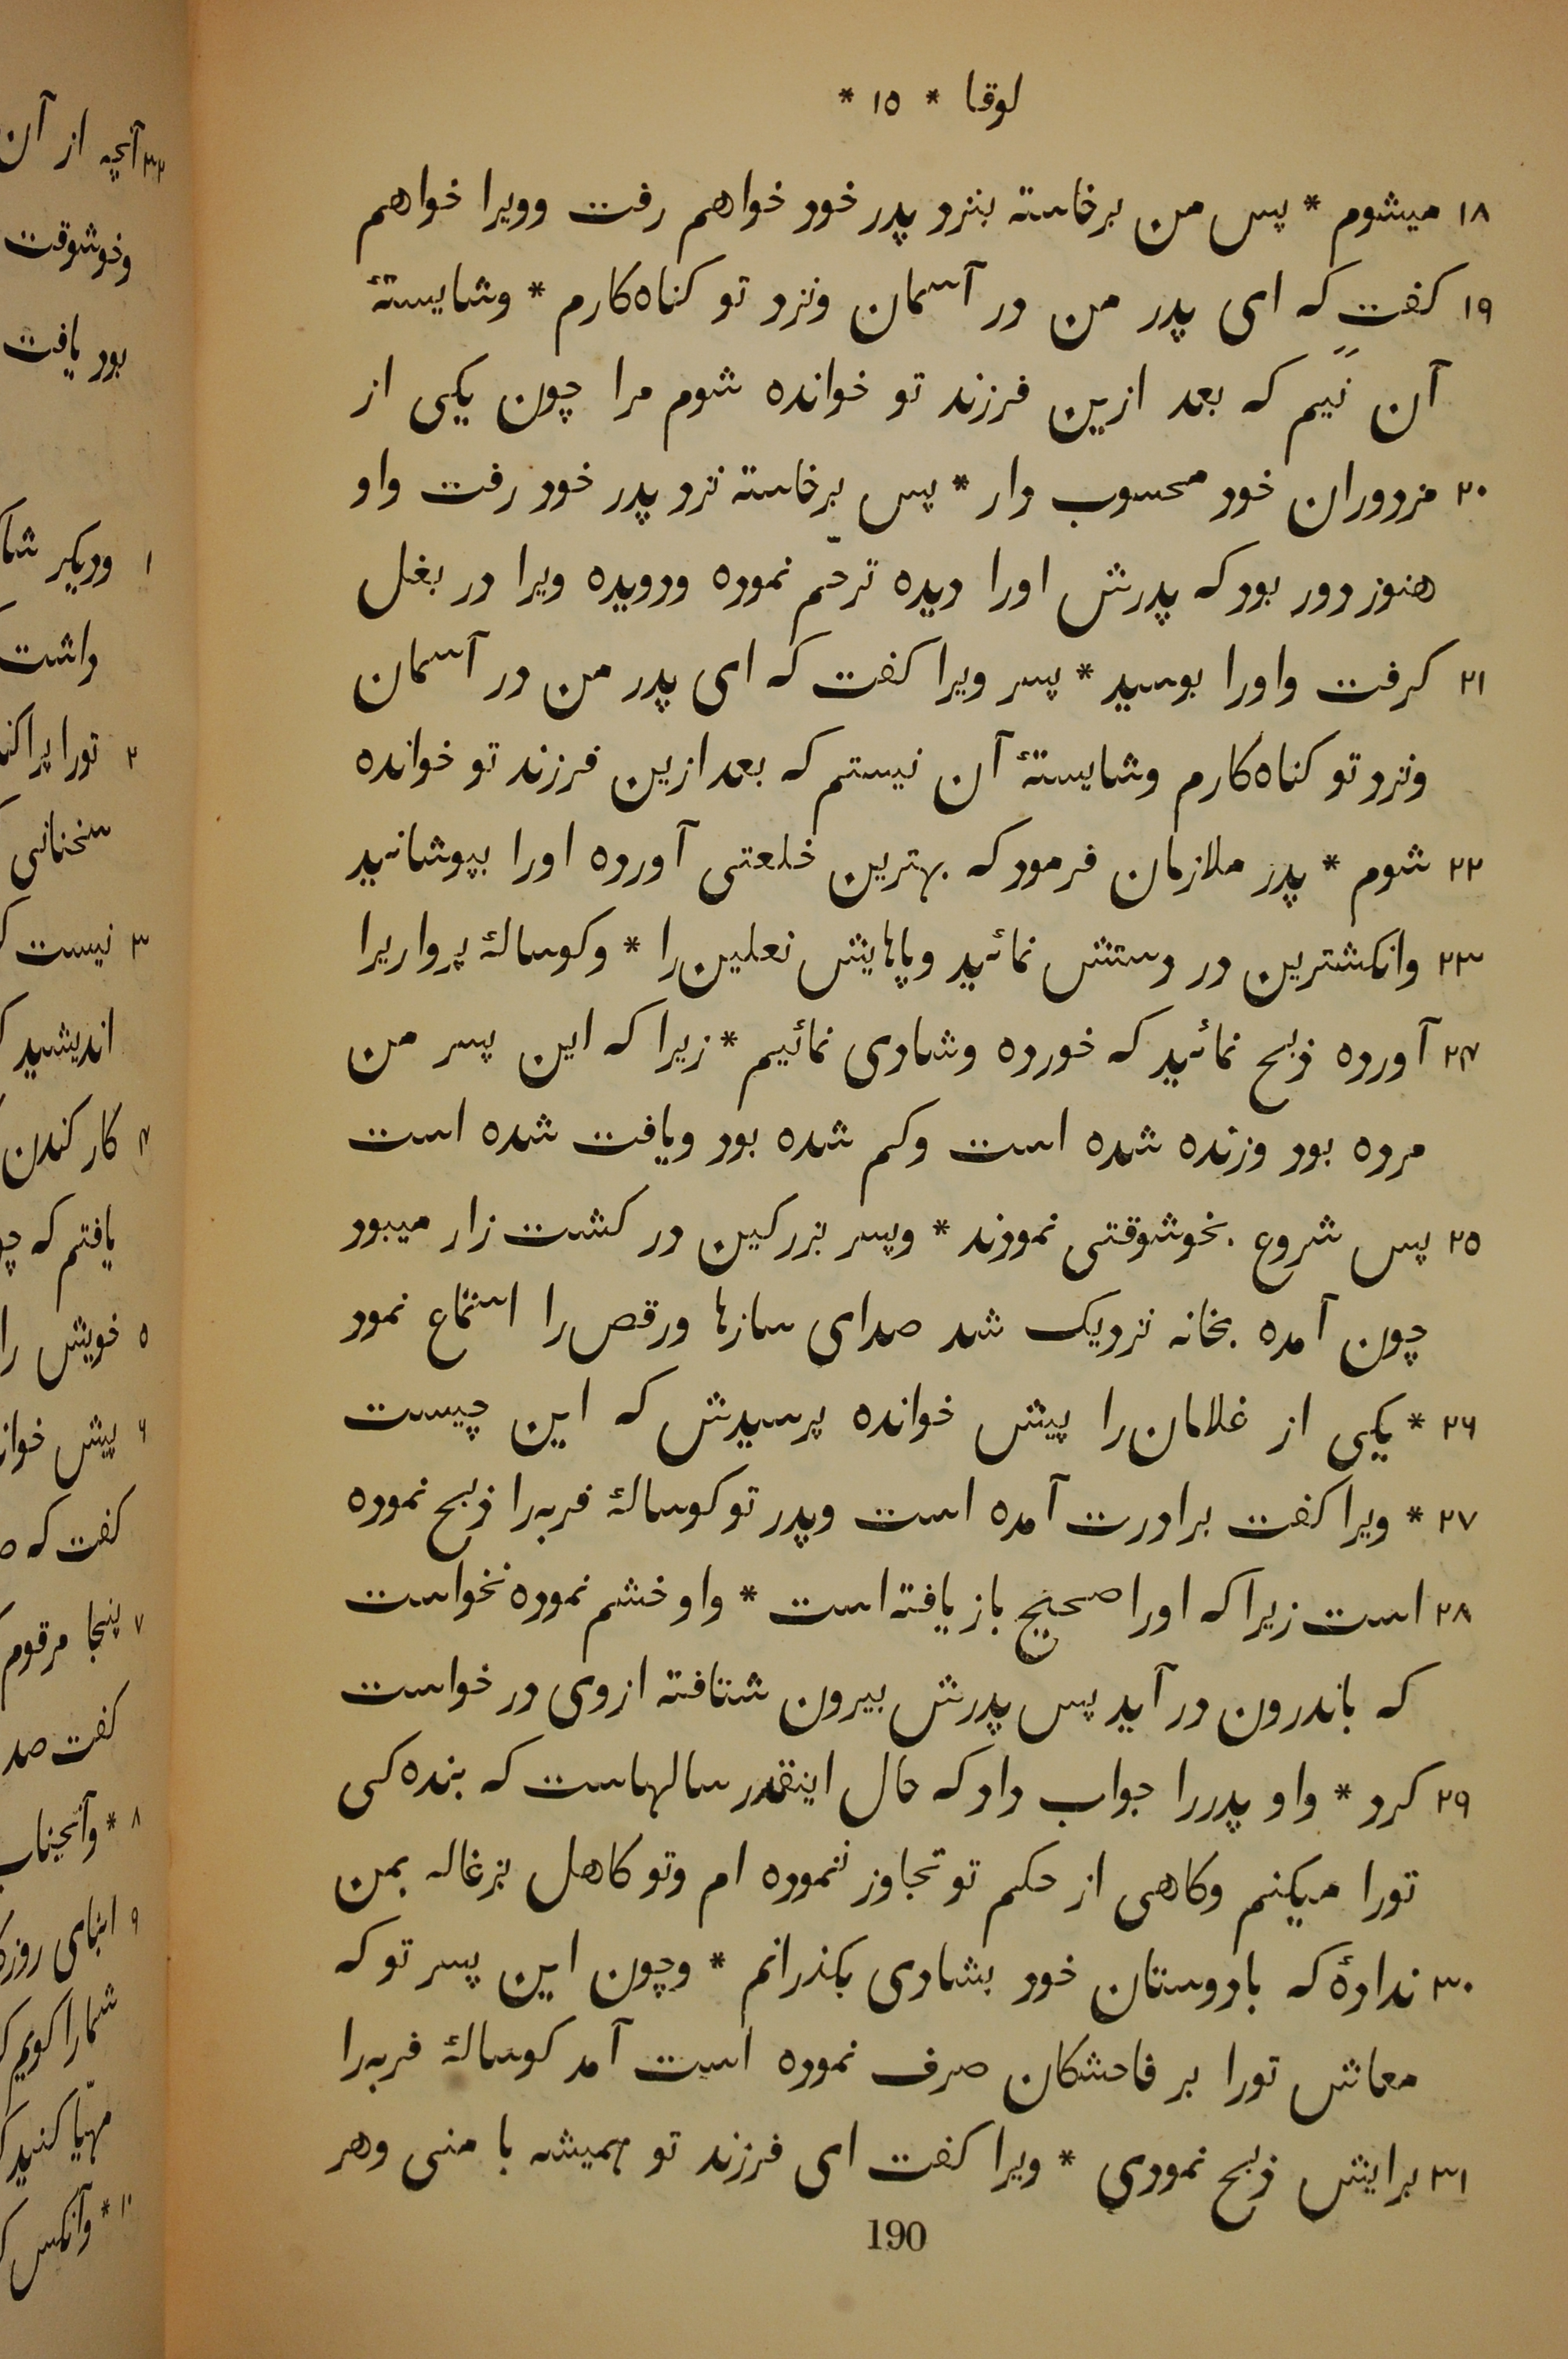 لوقا * ١٥ *
١٨ میشوم * پس من برخاسته بنزد پدر خود خواهم رفت وویرا خواهم
١٩ کفت که ای پدر من در آسمان ونزد تو کناه‌کارم * وشایستهٔ
آن نیم که بعد ازین فرزند تو خوانده شوم مرا چون یکی از
٢٠ مزدوران خود محسوب دار * پس برخاسته نزد پدر خود رفت واو
هنوز دور بود که پدرش اورا دیده ترحّم نموده ودویده ویرا در بغل
٢١ کرفت واورا بوسید * پسر ویرا کفت که ای پدر من در آسمان
ونزد تو کناه‌کارم وشایستهٔ آن نیستم که بعد ازین فرزند تو خوانده
٢٢ شوم * پدر ملازمان فرمود که بهترین خلعتی آورده اورا بپوشانید
٢٣ وانکشترین در دستش نمائید وپاهایش نعلین‌را * وکوسالهٔ پرواریرا
٢۴ آورده ذبح نمائید که خورده وشادی نمائیم * زیرا که این پسر من
مرده بود وزنده شده است وکم شده بود ویافت شده است
٢٥ پس شروع بخوشوقتی نمودند * وپسر بزرکین در کشت زار میبود
چون آمده بخانه نزدیک شد صدای سازها ورقص‌را استماع نمود
٢۶ * یکی از غلامان‌را پیش خوانده پرسیدش که این چیست
٢٧ * ویرا کفت برادرت آمده است وپدر تو کوسالهٔ فربه‌را ذبح نموده
٢٨ است زیرا که اورا صحیح باز یافته است * واو خشم نموده نخواست
که باندرون در آید پس پدرش بیرون شتافته ازوی در خواست
٢٩ کرد * واو پدررا جواب داد که حال اینقدر سالهاست که بنده‌کی
تورا میکنم وکاهی از حکم تو تجاوز ننموده ام وتو کاهل بزغاله بمن
٣٠ ندادهٔ که بادوستان خود بشادی بکذرانم * وچون این پسر تو که
معاش تورا بر فاحشکان صرف نموده است آمد کوسالهٔ فربه‌را
٣١ برایش ذبح نمودی * ویرا کفت ای فرزند تو همیشه با منی وهر
190
آنچه از آن
وخوشوقت
بود یافت
١ ودیکر
داشت
٢ تورا
سخنانی
٣ نیست
اندیشید
۴ کار کندن
یافتم که
٥ خویش را
۶ پیش
کفت که
٧ پنجا مرقوم
کفت صد
٨ *
٩ ابنای
شمارا کویم
مهیّا کنید
* وآنکس